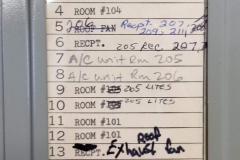 4 ROOM #104
206 Recpt. 207,
5 ROOF FAN 209, 211
6 RECPT. 205 REC. 207
7 A/C unit Rm 205
8 A/C unit Rm 206
9 ROOM 205 LITES
10 ROOM 205 LITES
11 ROOM #101
12 ROOM #101 Roof
13 RECPT. Exhaust fan